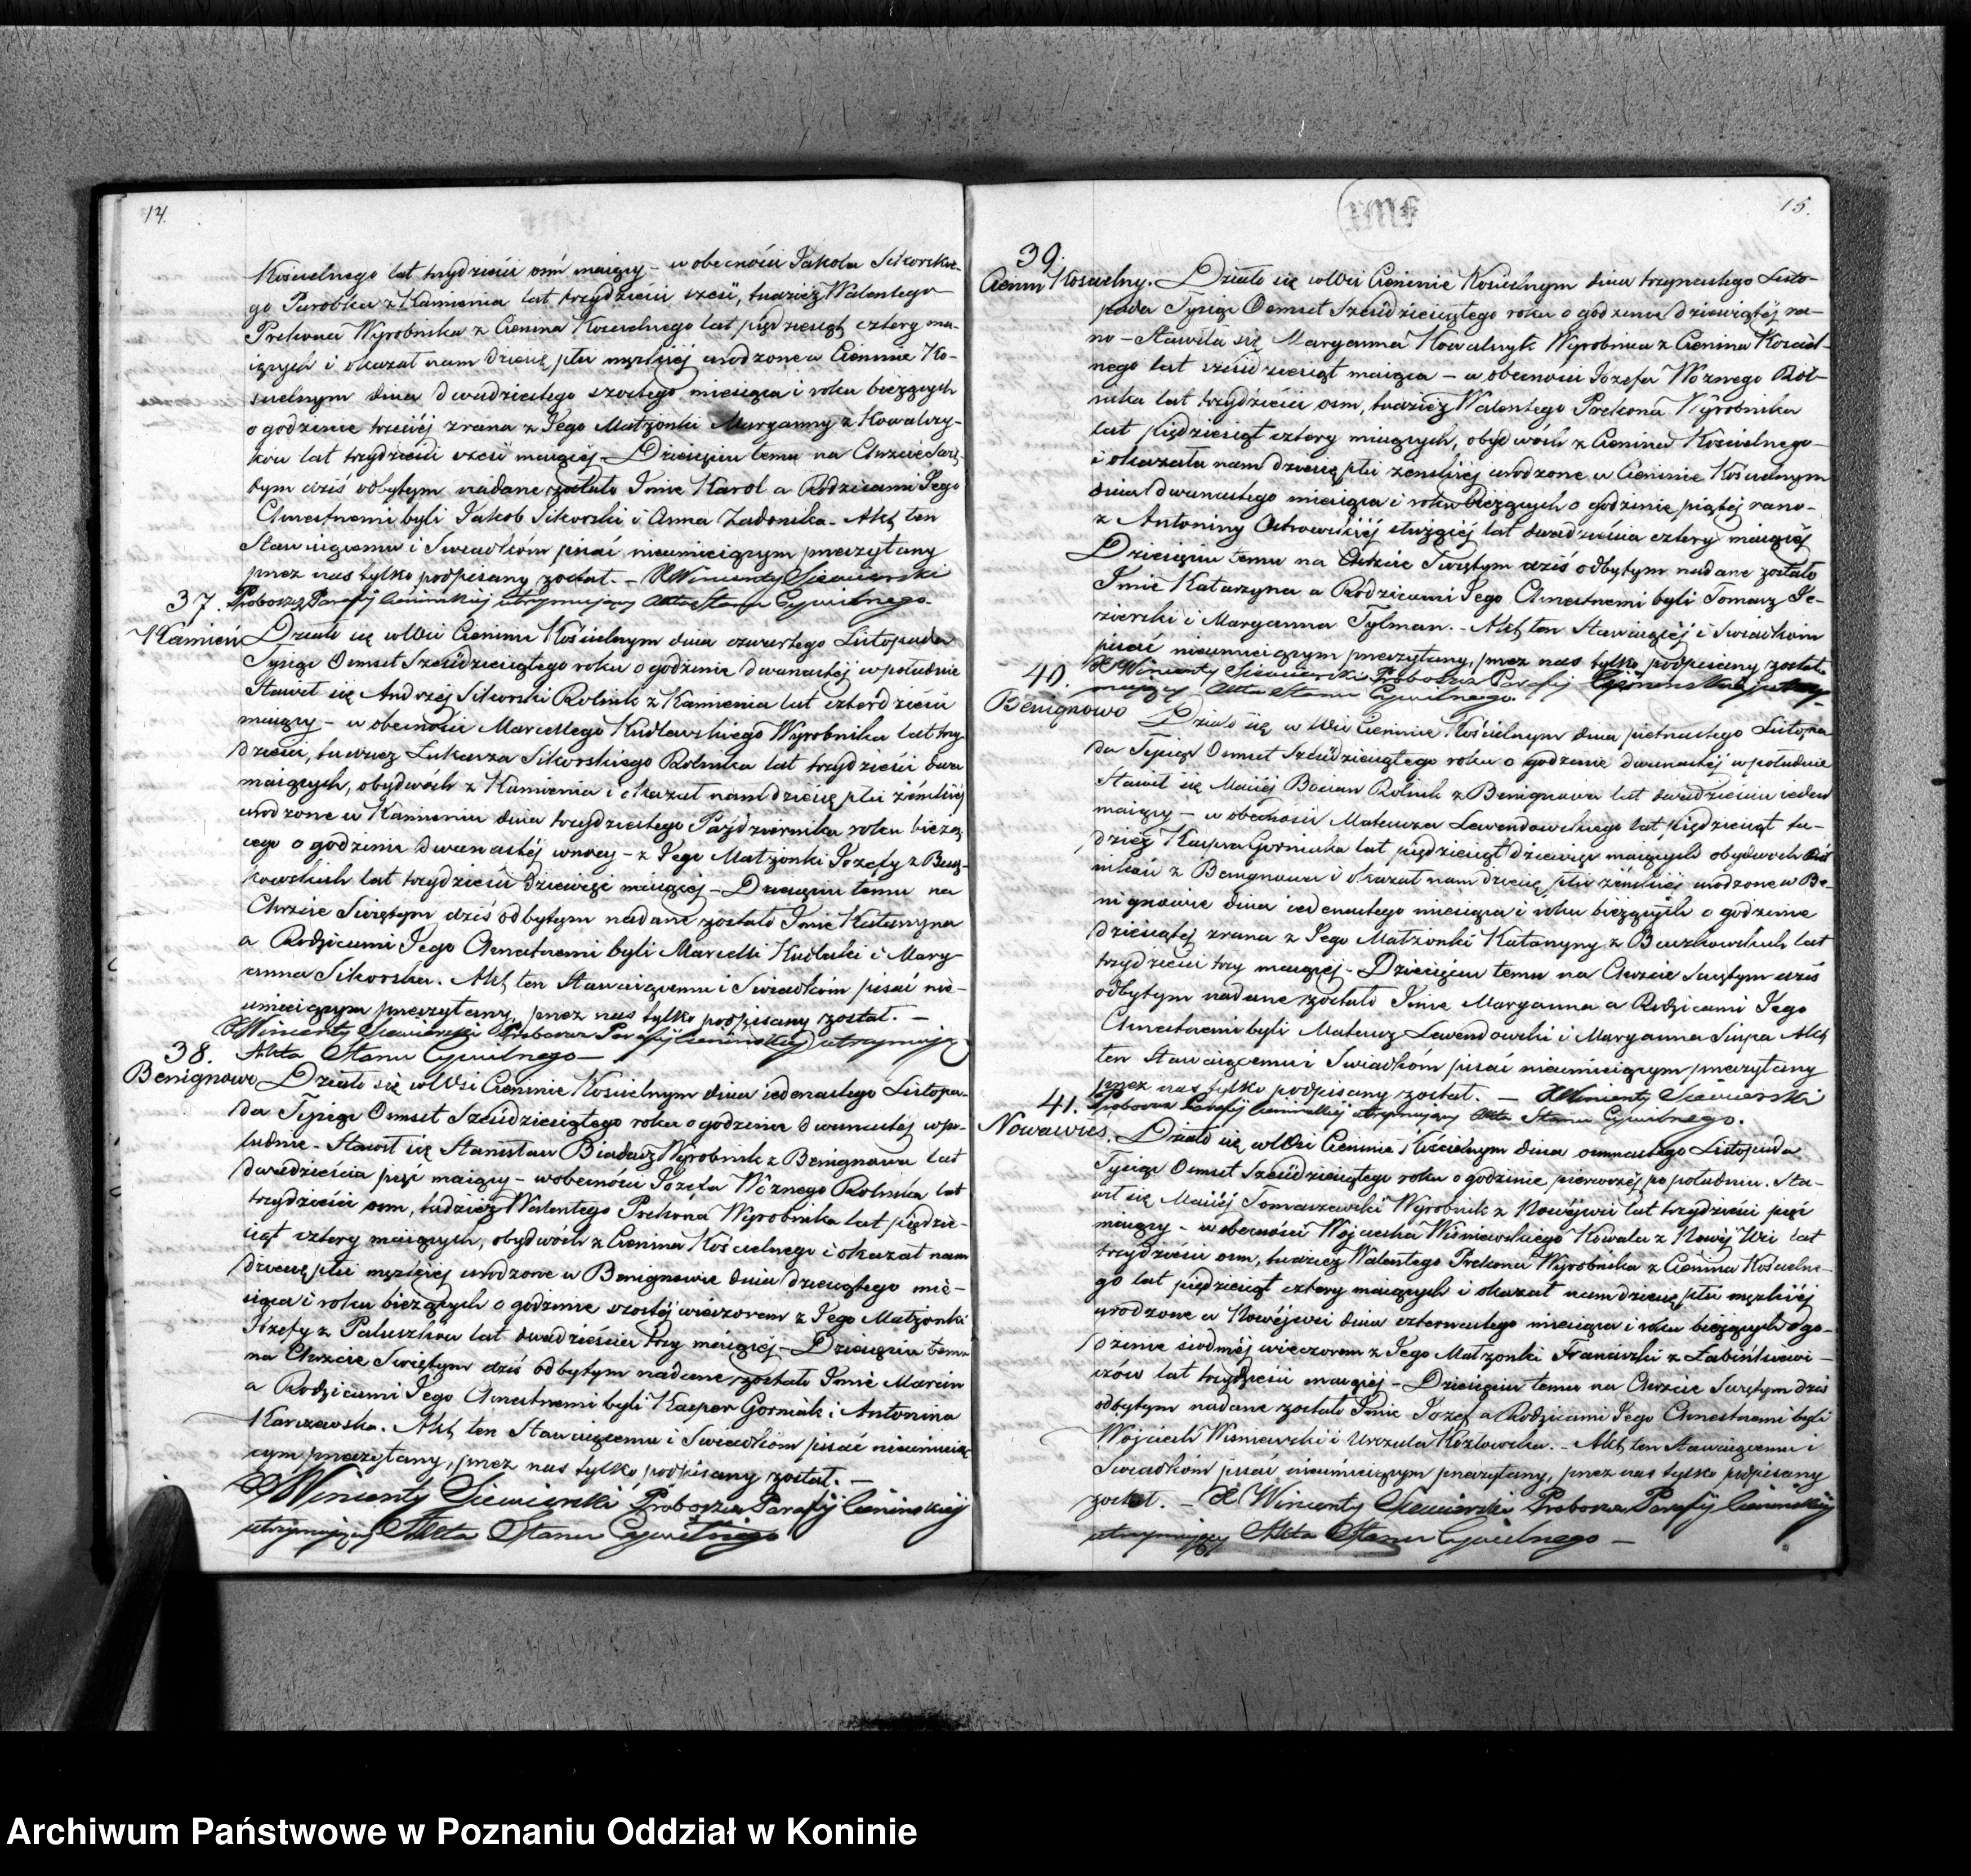 14.
Kościelnego lat trzydzieści osm maiący – w obecności Jakóba Sikorskie-
go Parobka z Kamienia lat trzydzieści sześć, tudzież Walentego
Prekona Wyrobnika z Cienina Kościelnego lat pięćdziesiąt cztery ma-
iących i okazał nam dziecię płci męzkiéj urodzone w Cieninie Ko-
ścielnym dnia dwudziestego szóstego miesiąca i roku bieżących
o godzinie trzeciéj zrana z Jego Małżonki Maryanny z Kowalczy-
ków lat trzydzieści sześć maiącéj – Dziecięciu temu na Chrzcie Świę-
tym dziś odbytym nadane zostało Imie Karol a Rodzicami Jego
Chrzestnemi byli Jakób Sikorski i Anna Zadonska – Akt ten
Stawaiącemu i Świadkóm pisać nieumieiącym przeczytany
przez nas tylko podpisany został. – X Wincenty Siewierski
Proboszcz Parafij Cieninskiéj utrzymuiący Akta Stanu Cywilnego.
37.
Kamień
Działo się w Wsi Cieninie Kościelnym dnia czwartego Listopada
Tysiąc Ośmset Sześćdziesiątego roku o godzinie dwunastéj w południe
Stawił się Andrzéj Sikorski Rolnik z Kamienia lat czterdzieści
maiący – w obecności Marcellego Kudławskiego Wyrobnika lat trzy
dzieści, tudzież Łukasza Sikorskiego Rolnika lat trzydzieści dwa
maiących, obydwóch z Kamienia i okazał nam dziecię płci żeńskiéj
urodzone w Kamieniu dnia trzydziestego Października roku bieżą-
cego o godzinie dwunastéj w nocy – z Jego Małżonki Józefy z Bucz-
kowskich lat trzydzieści dziewięć maiącéj – Dziecięciu temu na
Chrzcie Świętym dziś odbytym nadane zostało Imie Katarzyna
a Rodzicami Jego Chrzestnemi byli Marcelli Kudlaski i Mary-
anna Sikorska. Akt ten Stawaiącemu i Świadkóm pisać nie-
umieiącym przeczytany, przez nas tylko podpisany został. –
X Wincenty Siewierski Proboszcz Parafij Cieninskiéj utrzymuiący
Akta Stanu Cywilnego –
38.
Benignowo
Działo się w Wsi Cieninie Kościelnym dnia iedenastego Listopa-
da Tysiąc Ośmset Sześćdziesiątego roku o godzinie dwunastéj w po-
łudnie – Stawił się Stanisław Biadasz Wyrobnik z Benignowa lat
dwadzieścia pięć maiący – w obecności Józefa Woznego Rolnika lat
trzydzieści osm, tudzież Walentego Prekona Wyrobnika lat pięćdzie-
siąt cztery maiących, obydwóch z Cienina Kościelnego i okazał nam
dziecię płci męzkiéj urodzone w Benignowie dnia dziewiątego mie-
siąca i roku bieżących o godzinie szóstéj wieczorem z Jego Małżonki
Józefy z Paluszków lat dwadzieścia trzy maiącéj – Dziecięciu temu
na Chrzcie Świętym dziś odbytym nadane zostało Imie Marcin
a Rodzicami Jego Chrzestnemi byli Kacper Gorniak i Antonina
Karczewska. Akt ten Stawaiącemu i Świadkóm pisać nieumieią-
cym przeczytany, przez nas tylko podpisany został. –
X Wincenty Siewierski Proboszcz Parafij Cieninskiéj
utrzymuiący Akta Stanu Cywilnego
15.
39.
Cienin Kościelny.
Działo się w Wsi Cieninie Kościelnym dnia trzynastego Listo-
pada Tysiąc Ośmset Sześćdziesiątego roku o godzinie dziewiątéj ra-
no – Stawiła się Maryanna Kowalczyk Wyrobnica z Cienina Kościel-
nego lat sześćdziesiąt maiąca – w obecności Józefa Woznego Rol-
nika lat trzydzieści osm, tudzież Walentego Prekona Wyrobnika
lat pięćdziesiąt cztery maiących, obydwóch z Cienina Kościelnego –
i okazała nam dziecię płci żeńskiéj urodzone w Cieninie Kościelnym
dnia dwunastego miesiąca i roku bieżących o godzinie piątéj rano –
z Antoniny Ostrowskiéj służącéj lat dwadzieścia cztery maiącéj
Dziecięciu temu na Chrzcie Świętym dziś odbytym nadane zostało
Imie Katarzyna a Rodzicami Jego Chrzestnemi byli Tomasz Je-
zierski i Maryanna Tylman. – Akt ten Stawaiącéj i Świadkóm
pisać nieumieiącym przeczytany, przez nas tylko podpisany został
X Wincenty Siewierski Proboszcz Parafij Cieninskiéj utrzy-
muiący Akta Stanu Cywilnego.
40.
Benignowo
Działo się w Wsi Cieninie Kościelnym dnia piętnastego Listopa
da Tysiąc Ośmset Sześćdziesiątego roku o godzinie dwunastéj w południe
Stawił się Maciéj Bocian Rolnik z Benignowa lat dwadzieścia ieden
maiący – w obecności Mateusza Lewandowskiego lat pięćdziesiąt tu-
dzież Kaspra Gorniaka lat pięćdziesiąt dziewięć maiących obydwóch Rol
ników z Benignowa i okazał nam dziecię płci żeńskiéj urodzone w Be-
nignowie dnia iedenastego miesiąca i roku bieżących o godzinie
dziesiątéj zrana z Jego Małżonki Katarzyny z Buczkowskich lat
trzydzieści trzy maiącéj – Dziecięciu temu na Chrzcie Świętym dziś
odbytym nadane zostało Imie Maryanna a Rodzicami Jego
Chrzestnemi byli Mateusz Lewandowski i Maryanna Akt
ten Stawaiącemu i Świadkóm pisać nieumieiącym przeczytany
przez nas tylko podpisany został. – X Wincenty Siewierski
Proboszcz Parafij Cieninskiéj utrzymuiący Akta Stanu Cywilnego.
41.
Nowawieś.
Działo się w Wsi Cieninie Kościelnym dnia osmnastego Listopada
Tysiąc Ośmset Sześćdziesiątego roku o godzinie pierwszéj po południu. Sta-
wił się Maciéj Tomaszewski Wyrobnik z Nowéjwsi lat trzydzieści pięć
maiący – w obecności Wojciecha Wiśniewskiego Kowala z Nowéj Wsi lat
trzydzieści osm, tudzież Walentego Prekona Wyrobnika z Cienina Kościelne-
go lat pięćdziesiąt cztery maiących i okazał nam dziecię płci męzkiéj
urodzone w Nowéjwsi dnia czternastego miesiąca i roku bieżących o go-
dzinie siódméj wieczorem z Jego Małżonki Franciszki z Łabińskiewi-
czów lat trzydzieści maiącéj – Dziecięciu temu na Chrzcie Świętym dziś
odbytym nadane zostało Imie Józef a Rodzicami Jego Chrzestnemi byli
Wojciech Wiśniewski i Urszula Kozłowska. – Akt ten Stawaiącemu i
Świadkóm pisać nieumieiącym przeczytany, przez nas tylko podpisany
został. – X Wincenty Siewierski Proboszcz Parafij Cieninskiéj
utrzymuiący Akta Stanu Cywilnego –
Archiwum Państwowe w Poznaniu Oddział w Koninie